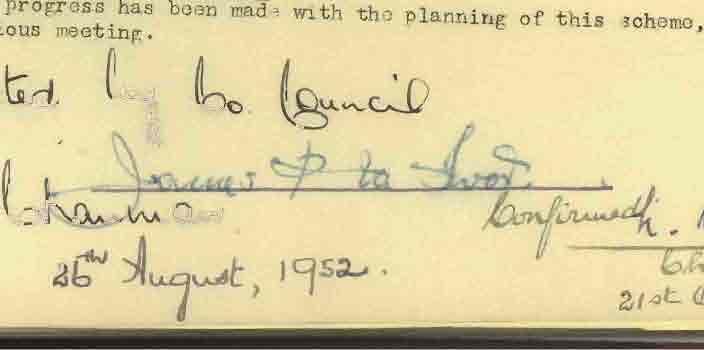 progress has been made with the planning of this scheme,
ous meeting.
ted by Co. Council
James P
Chairman
Confirmed
26th August, 1952.
21st